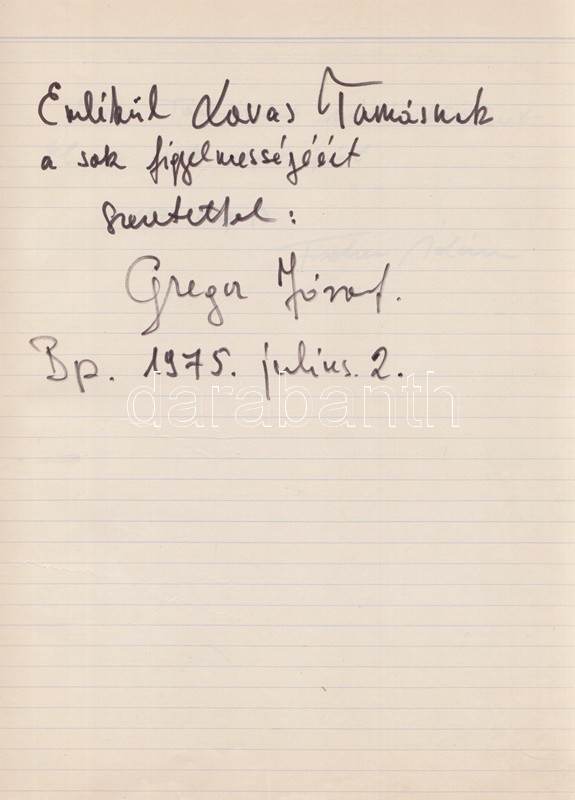 Emlékül Lovas Tamásnak
a sok figyelmességéért
szeretettel:
Gregor József.
Bp. 1975. július. 2.
darabanth